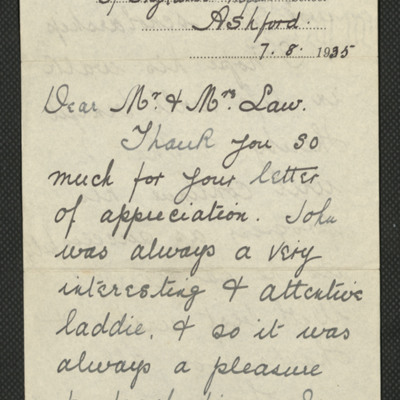 Ashford.
7. 8. 1935
Dear Mr. & Mrs Law.
Thank you so
much for your letter
of appreciation. John
was always a very
interesting & attentive
laddie, & so it was
always a pleasure